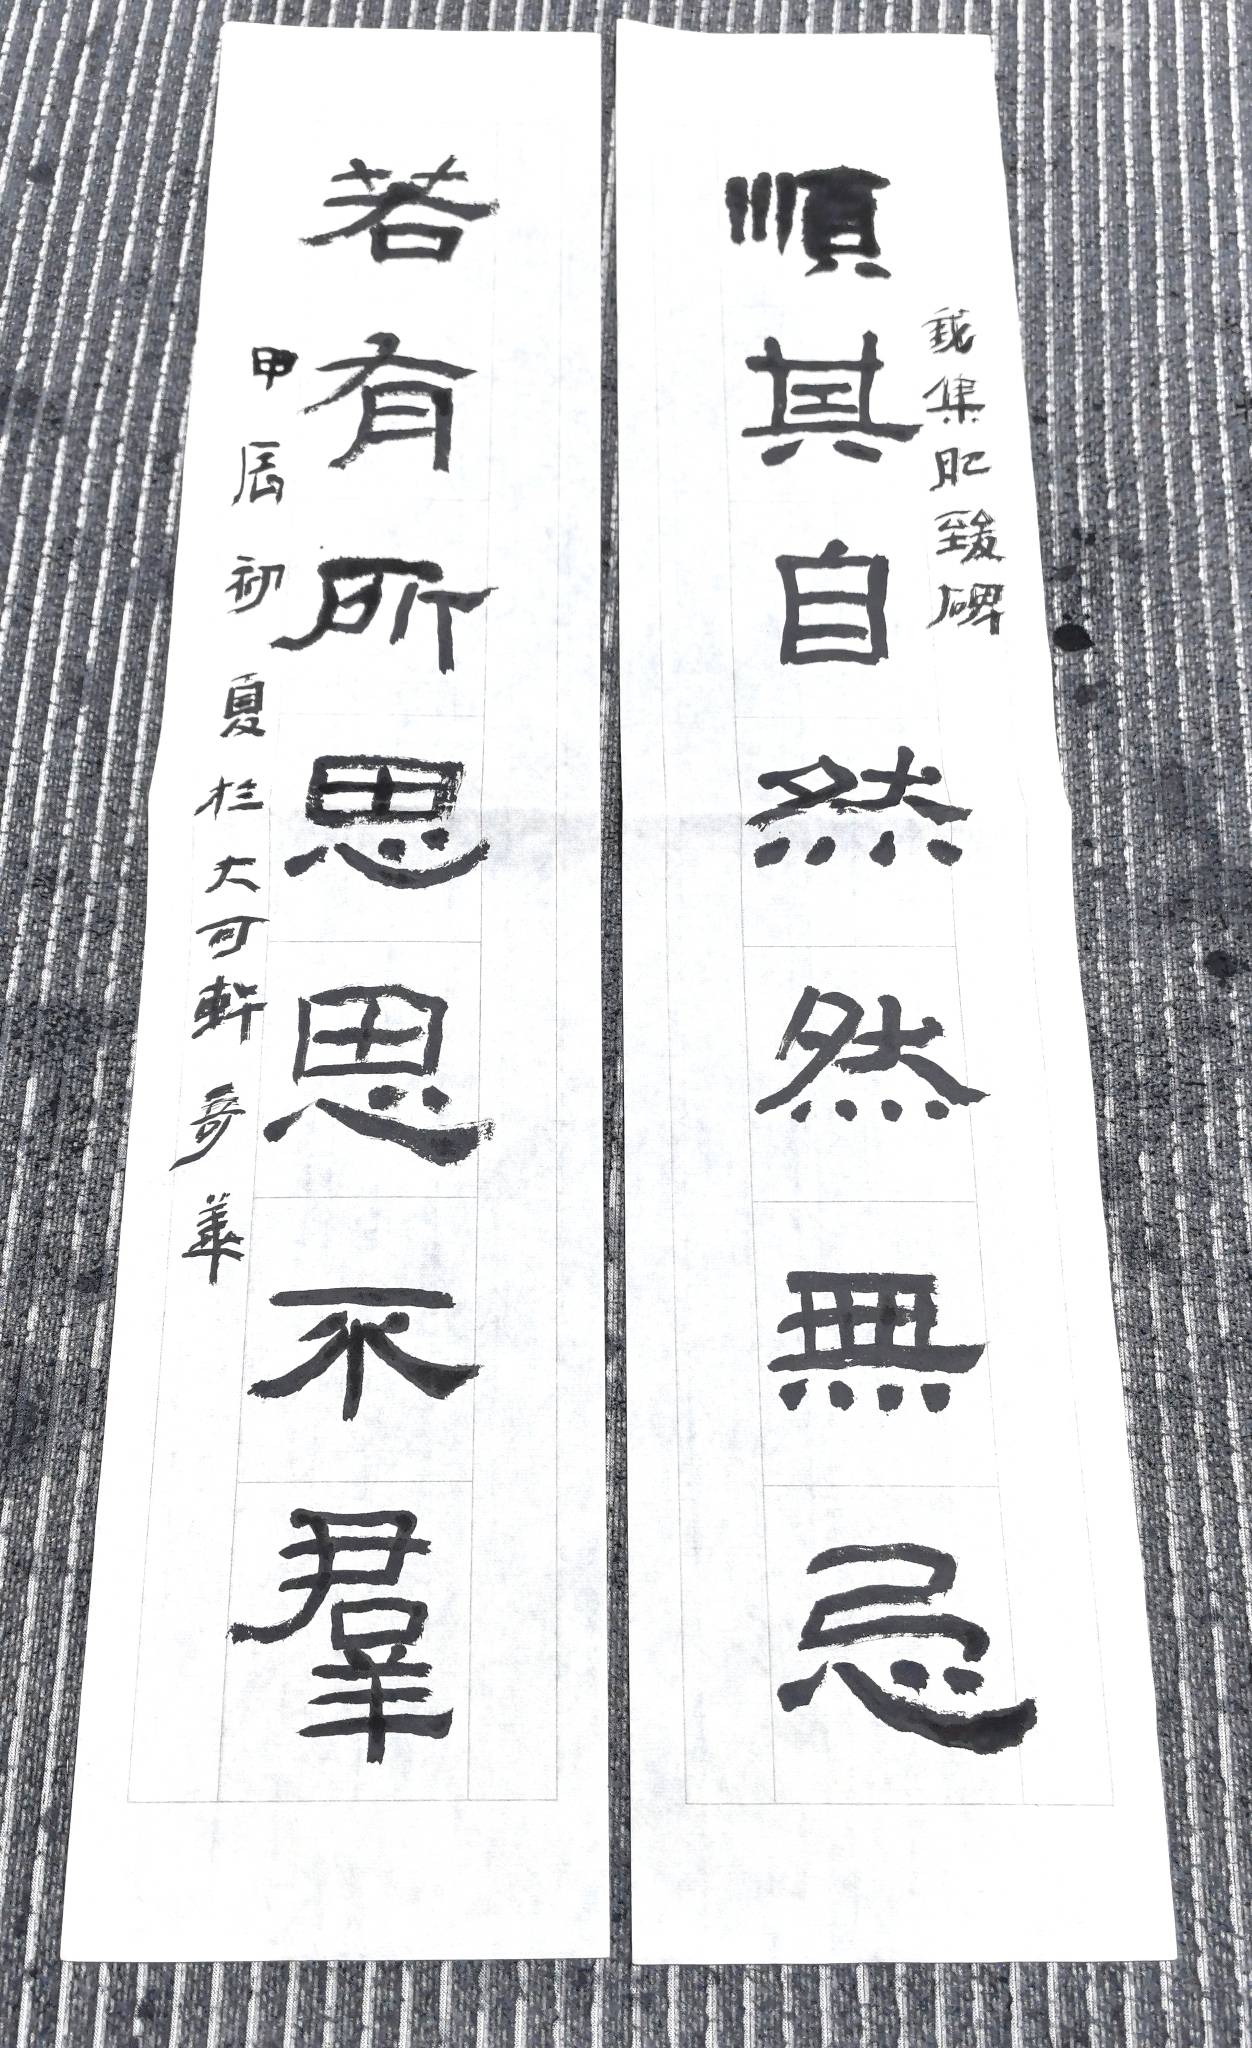 順其自然然無忌
集肥致碑
若有所思思不羣
甲辰初夏於大可軒奇華